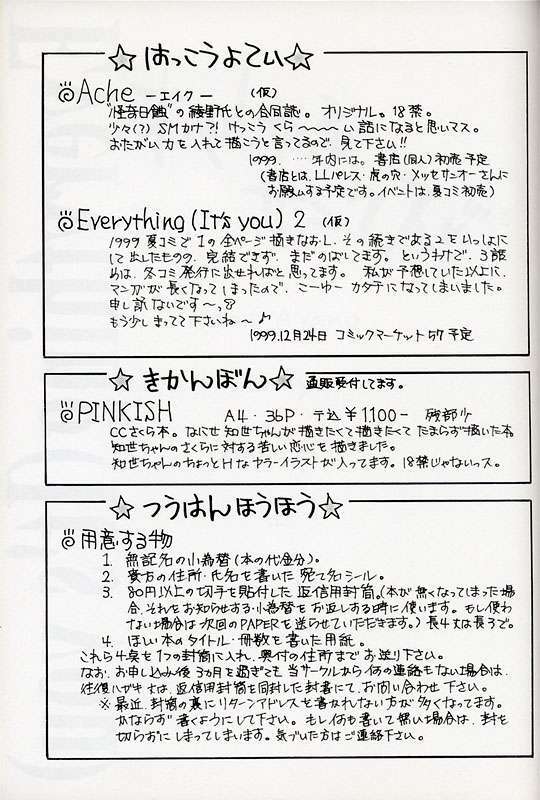 ☆ はっこうよてい ☆
Ache ーエイクー （仮）
"怪奇日蝕"の綾野氏との合同誌。オリジナル。18禁。
少々(?) SMカナ?! けっこう くら〜〜〜〜い話になると思いマス。
おたがい力を入れて描こうと言ってるので、見て下さい!!
1999. ‥‥年内には。書店(同人)初売予定
(書店とは、LLパレス・虎の穴・メッセサンオーさんに
お願いする予定です。イベントは、夏コミ初売)
Everything (It's you) 2 （仮）
1999夏コミで1の全ページ描きなおし、その続きである2をいっしょに
して出したものの、完結できず、まだのばしてます。というわけで、3話
めは、冬コミ発行に出せればと思ってます。 私が予想していた以上に、
マンガが長くなってしまったので、こーゆーカタチになってしまいました。
申し訳ないです〜っ
もう少しまってて下さいね〜♪
1999.12月24日 コミックマーケット57 予定
☆ きかんぼん ☆ 通販受付してます。
PINKISH A4・36P・〒込￥1100- 残部少
CCさくら本。なにせ知世ちゃんが描きたくて描きたくてたまらず描いた本。
知世ちゃんのさくらに対する苦しい恋心を描きました。
知世ちゃんのちょっとHなカラーイラストが入ってます。18禁じゃないっス。
☆ つうはんほうほう ☆
用意する物
1. 無記名の小為替(本の代金分)。
2. 貴方の住所・氏名を書いた宛て名シール。
3. 80円以上の切手を貼付した返信用封筒。(本が無くなってしまった場
合、それをお知らせする・小為替をお返しする時に使います。もし使わ
ない場合は次回のPAPERを送らせていただきます。) 長4又は長3で。
4. ほしい本のタイトル・冊数を書いた用紙。
これら4点を1つの封筒に入れ、奥付の住所までお送り下さい。
なお、お申し込み後3カ月を過ぎても当サークルから何の連絡もない場合は、
往復ハガキ又は、返信用封筒を同封した封書にて、お問い合わせ下さい。
※最近、封筒の裏にリターンアドレスを書かれない方が多くなってます。
かならず書くようにして下さい。もし何も書いて無い場合は、封を
切らずにしまってしまいます。気づいた方はご連絡下さい。